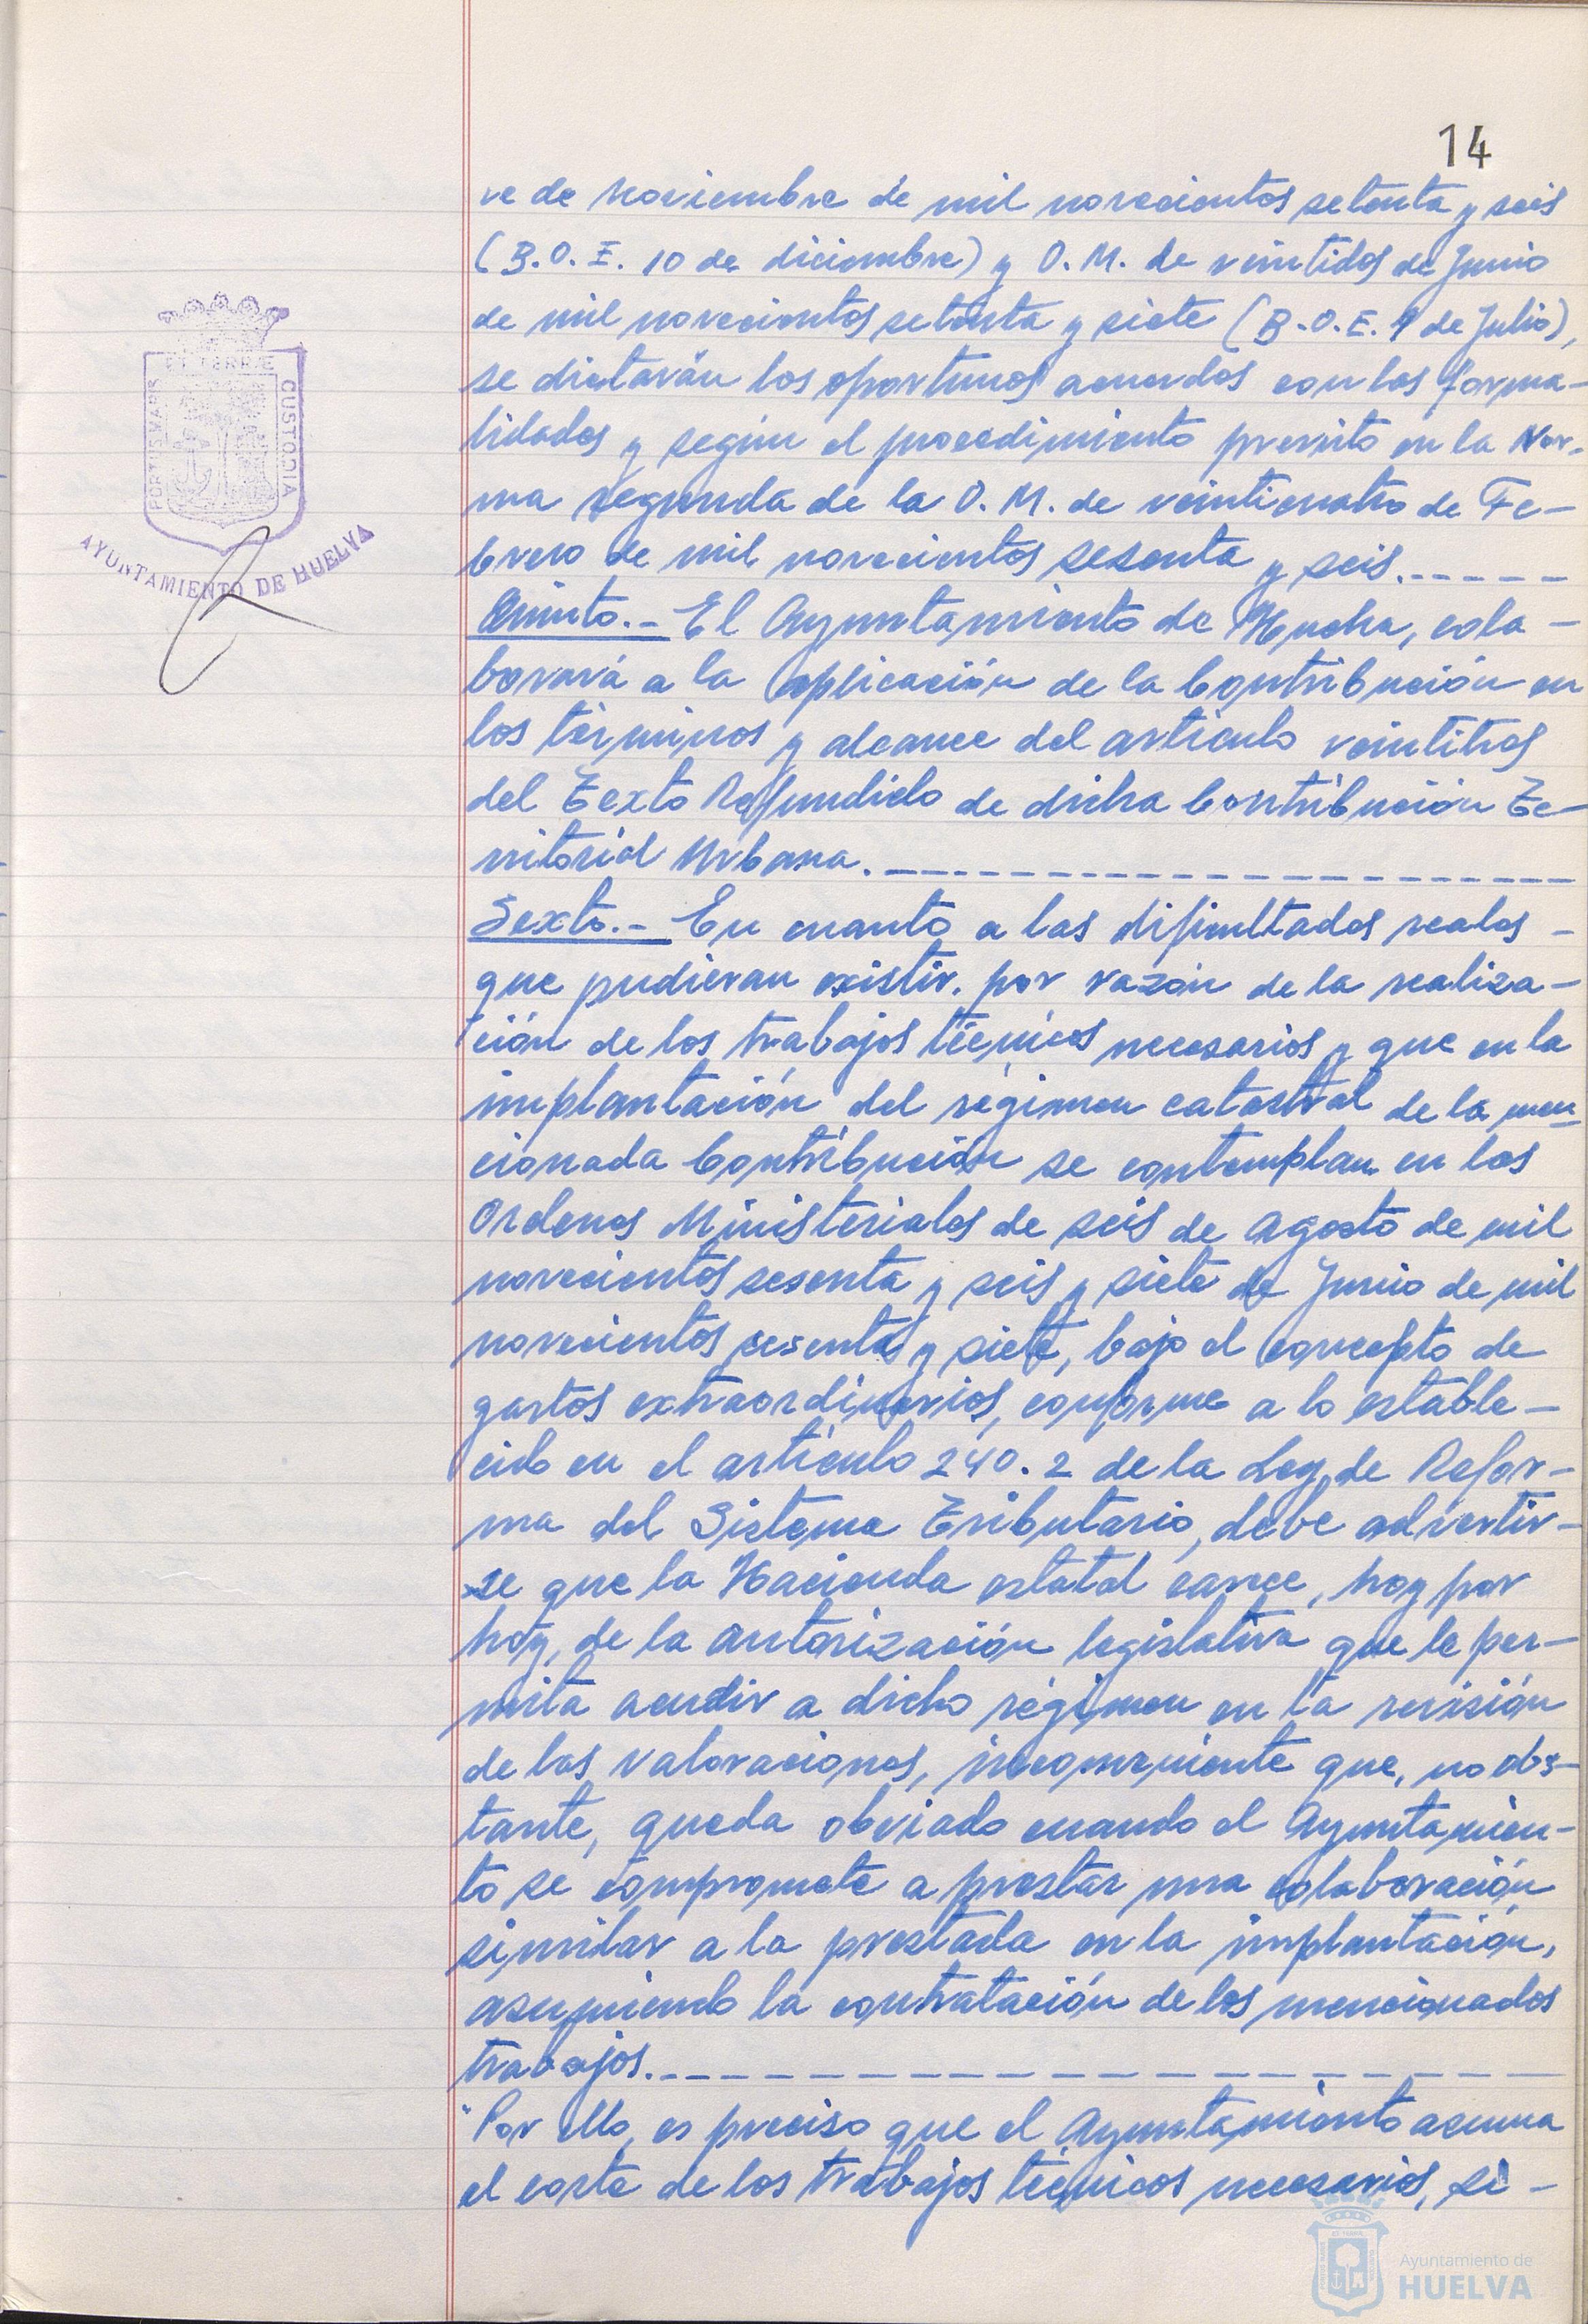 14
ve de Noviembre de mil novecientos setenta y seis
(B.O.E. 10 de diciembre) y O.M. de veintidos de Junio
de mil novecientos setenta y siete (B.O.E. 9 de Julio),
se dictarán los oportunos acuerdos con las forma-
lidades y según el procedimiento previsto en la Nor-
ma segunda de la O.M. de veinticuatro de Fe-
brero de mil novecientos sesenta y seis.-----
Quinto.- El Ayuntamiento de Huelva, cola-
borará a la aplicación de la Contribución en
los términos y alcance del artículo veintitres
del Texto Refundido de dicha Contribución Te-
rritorial Urbana.--------------------
Sexto.- En cuanto a las dificultades reales -
que pudieran existir. por razón de la realiza-
ción de los trabajos técnicos necesarios y que en la
implantación del régimen catastral de la men
cionada Contribución se contemplan en las
Ordenes Ministeriales de seis de Agosto de mil
novecientos sesenta y seis y siete de Junio de mil
novecientos sesenta y siete, bajo el concepto de
gastos extraordinarios, conforme a lo estable-
cido en el artículo 240.2 de la Ley de Refor-
ma del Sistema Tributario, debe advertir-
se que la Hacienda estatal carece, hoy por
hoy, de la autorización legislativa que le per-
mita acudir a dicho régimen en la revisión
de las valoraciones, inconveniente que, no obs-
tante, queda obviado cuando el Ayuntamien-
to se compromete a prestar una colaboración
similar a la prestada en la implantación,
asumiendo la contratación de los mencionados
trabajos.--------------------
Por ello, es preciso que el Ayuntamiento asuma
el coste de los trabajos técnicos necesarios, si-
PORTUS MARIS
ET TERRÆ
CUSTODIA
AYUNTAMIENTO DE HUELVA
Ayuntamiento de
HUELVA